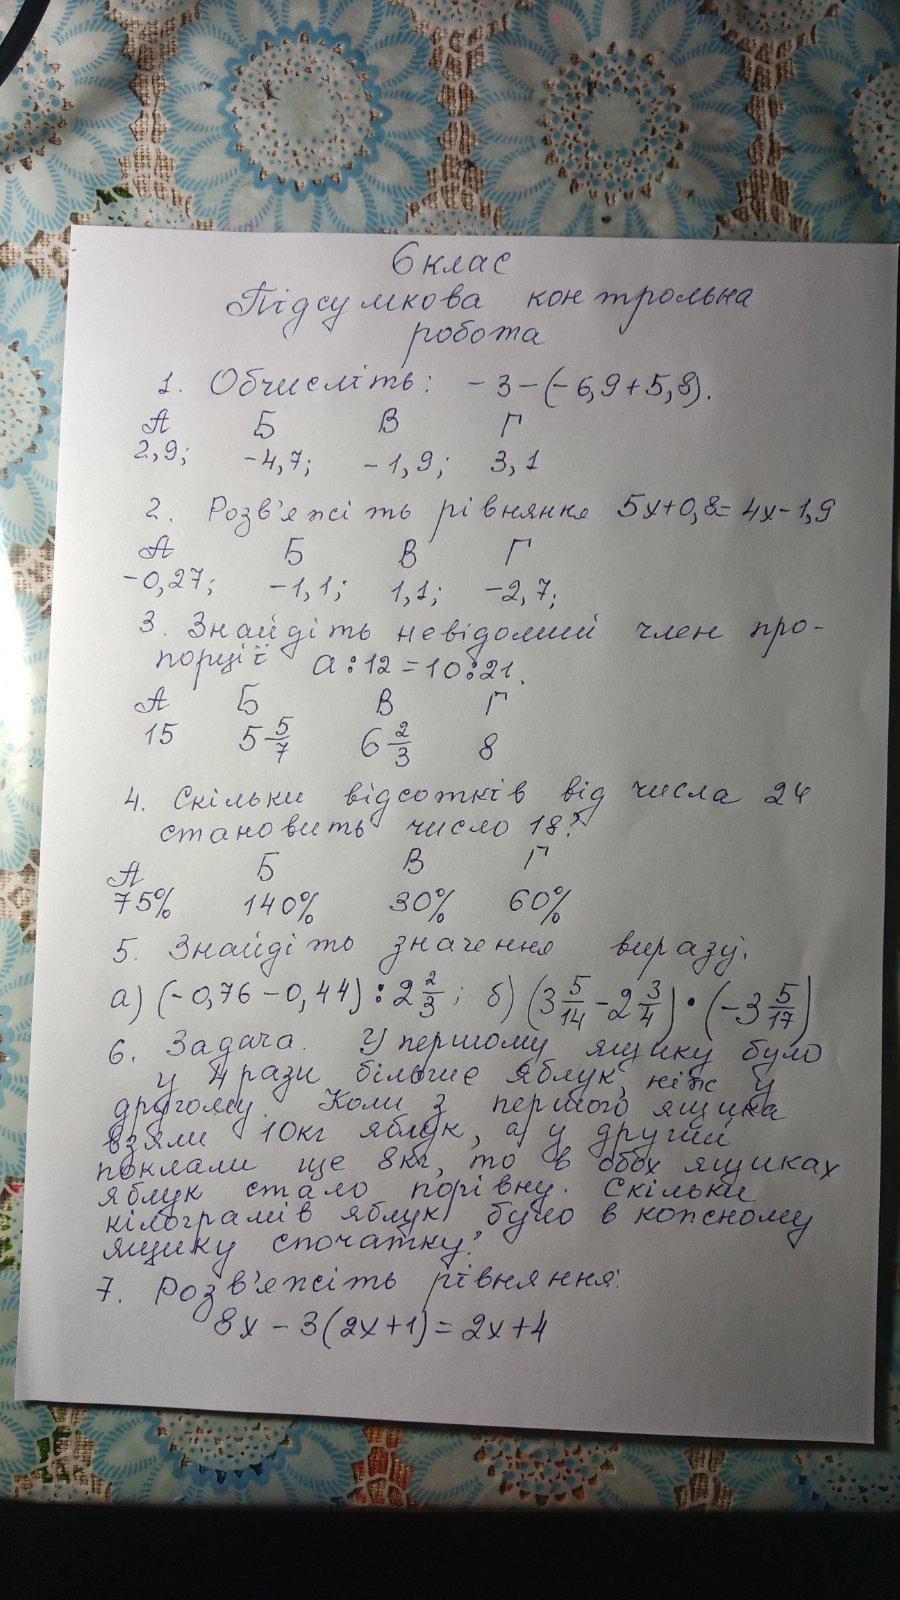 6 клас
Підсумкова контрольна
робота
1. Обчисліть: -3-(-6,9+5,8).
А Б В Г
2,9; -4,7; -1,9; 3,1
2. Розв'яжіть рівняння 5х+0,8=4х-1,9
А Б В Г
-0,27; -1,1; 1,1; -2,7;
3. Знайдіть невідомий член про-
порції а:12=10:21.
А Б В Г
15 5 5/7 6 2/3 8
4. Скільки відсотків від числа 24
становить число 18?
А Б В Г
75% 140% 30% 60%
5. Знайдіть значення виразу:
а) (-0,76-0,44):2 2/3; б) (3 5/14-2 3/4)•(-3 5/17)
6. Задача. У першому ящику було
у 4 рази більше яблук, ніж у
другому. Коли з першого ящика
взяли 10кг яблук, а у другий
поклали ще 8кг, то в обох ящиках
яблук стало порівну. Скільки
кілограмів яблук було в кожному
ящику спочатку?
7. Розв'яжіть рівняння:
8х-3(2х+1)=2х+4